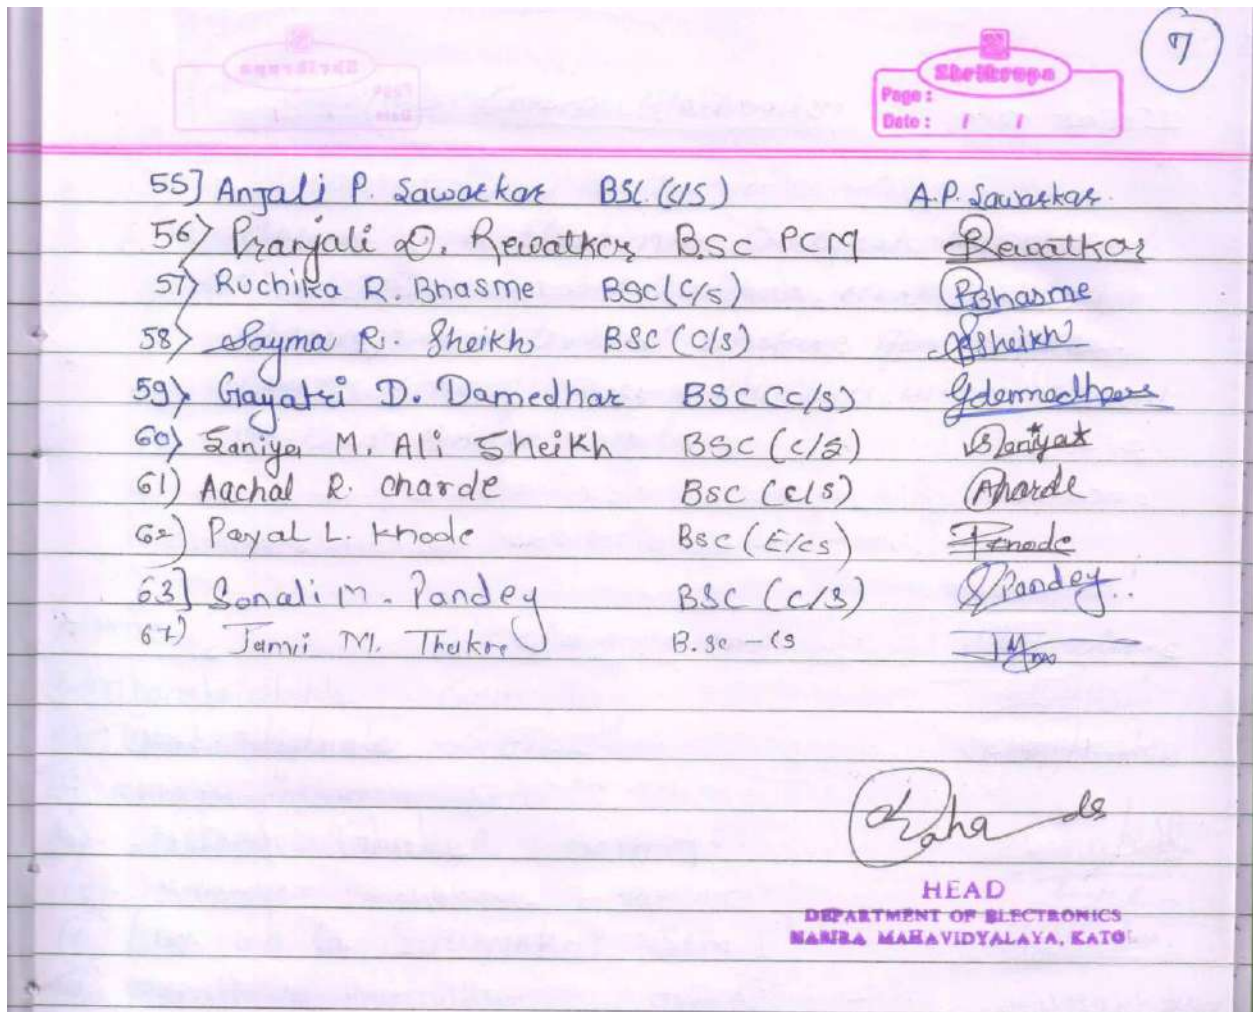 7
Shrikrupa
Page :
Date : / /
55] Anjali P. Sawarkar BSC. (C/S) A.P. Sawarkar.
56> Pranjali D. Rewatkar B.Sc PCM Rewatkar
57> Ruchika R. Bhasme BSc (C/S) RBhasme
58> Sayma R. Sheikh BSC (C/S) Sheikh
59> Gayatri D. Damedhar BSC (C/S)
60> Saniya M. Ali Sheikh BSC (C/S) Saniya
61) Aachal R. Charde BSC (C/S) Aharde
62) Payal L. Khode BSC (E/CS)
63] Sonali M. Pandey BSC (C/S) SPandey..
64) Janvi M. Thakre B.Sc CS
HEAD
DEPARTMENT OF ELECTRONICS
NABIRA MAHAVIDYALAYA, KATOL